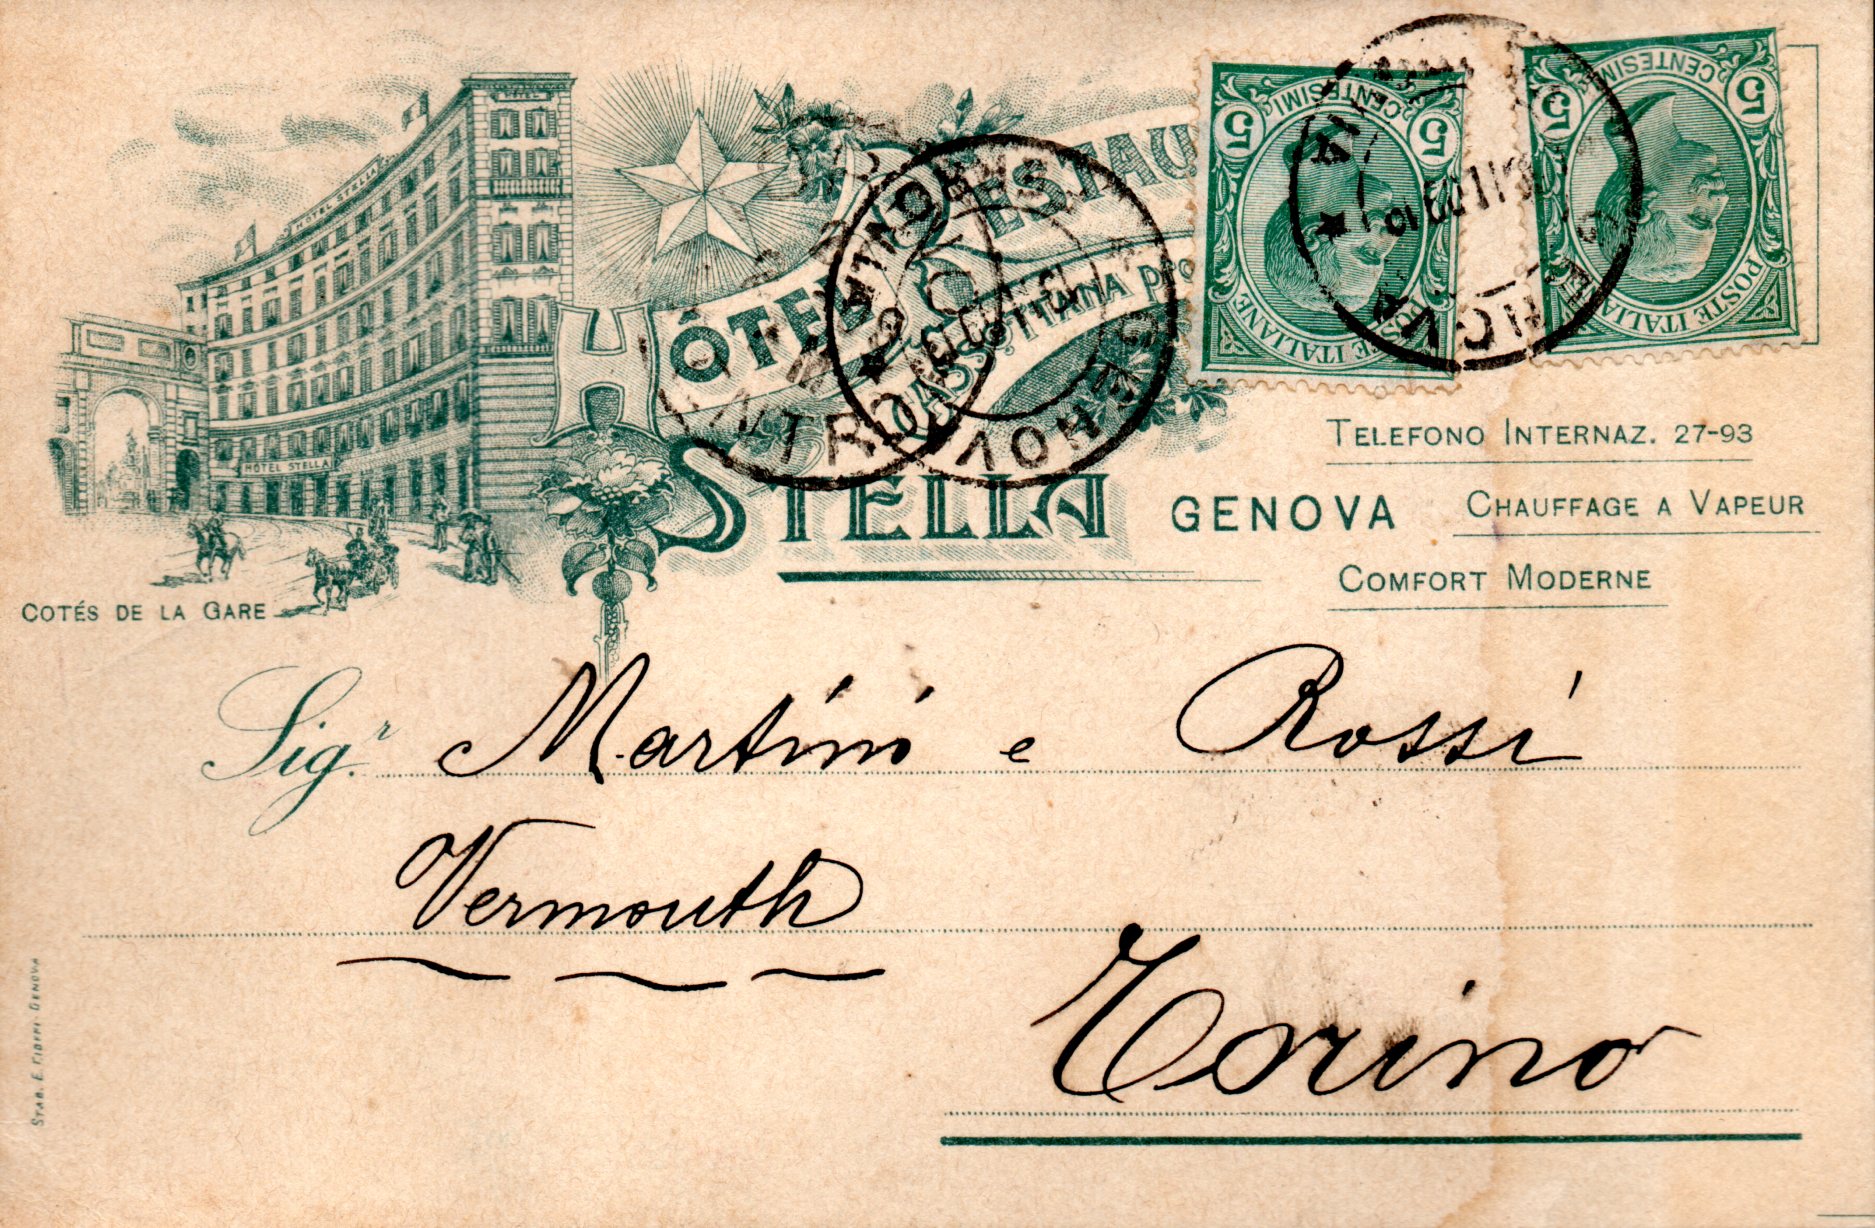 HÔTEL STELLA
HÔTEL STELLA
HÔTEL RESTAU
STELLA
GENOVA
TELEFONO INTERNAZ. 27-93
CHAUFFAGE A VAPEUR
COMFORT MODERNE
COTÉS DE LA GARE
5 CENTESIMI 5
POSTE ITALIANE
5 CENTESIMI 5
POSTE ITALIANE
GENOVA
Sig.r Martini e Rossi
Vermouth
Torino